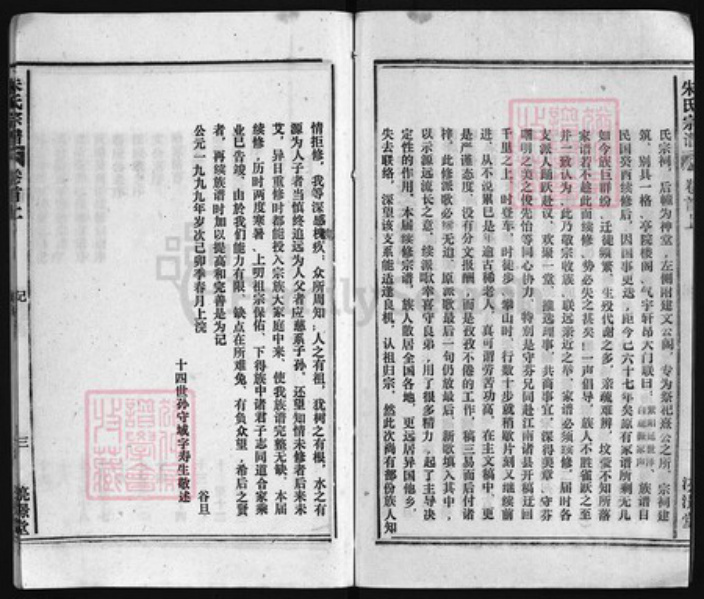 朱氏宗譜
卷首上
氏宗祠，后幢为神堂，左侧附建文公阁，专为祭祀熹公之所，宗祠建
筑，别具一格，亭院楼阁，气宇轩昂大门联曰：族谱自
民国癸酉续修后，因国事更迭，距今已六十七年矣原有家谱所剩无几
如今族巨群纷，迁徙频繁，生殁代谢之多，亲疏难辨，坟茔不知所落
家谱若不趁此而续修，势必失之甚矣！一声倡导，族人不胜雀跃之至
并一致认为：此乃敬宗收族，联远亲近之举，家谱必须续修，届时各
支派人踊跃赴议，欢聚一堂，推选理事，共商事宜，深得美章、守芬
曙明之美之俊先怡等同心协力，特别是守芬兄同赴江南诸县开稿迂回
千里之上，时登车，时徒步，攀山时，行数十步就稍歇片刻又继续前
进，从不说累已是年逾古稀老人，真可谓劳苦功高，在主文稿中，更
是严谨态度，没有分文报酬，而是孜孜不倦的工作，稿三易而后付诸
梓，此修派歌必将无迫，原派歌最后一句仍放最后，新歌填入其中，
以示源远流长之意，续派歌幸喜守良弟，用了很多精力，起了主导决
定性的作用，本届续修宗谱，族人散居全国各地，更远居异国他乡，
失去联络，深望该支系能适逢良机，认祖归宗，然此次尚有部份族人知
朱氏宗譜
卷首上
記
三
情拒修，我等深感愧疚；众所周知；人之有祖，犹树之有根，水之有
源为人子者当慎终追远为人父者应慈系子孙，还望知情未修者后来未
艾，异日重修时都能投入宗族大家庭中来，使我族谱完整无缺，本届
续修，历时两度寒暑、上叨祖宗保佑，下得族中诸君子志同道合家乘
业已告竣，由於我们能力有限，缺点在所难免，有负众望，希后之贤
者，再续族谱时加以提高和完善是为记
公元一九九九年岁次己卯季春月上浣
谷旦
十四世孙守城字寿生敬述